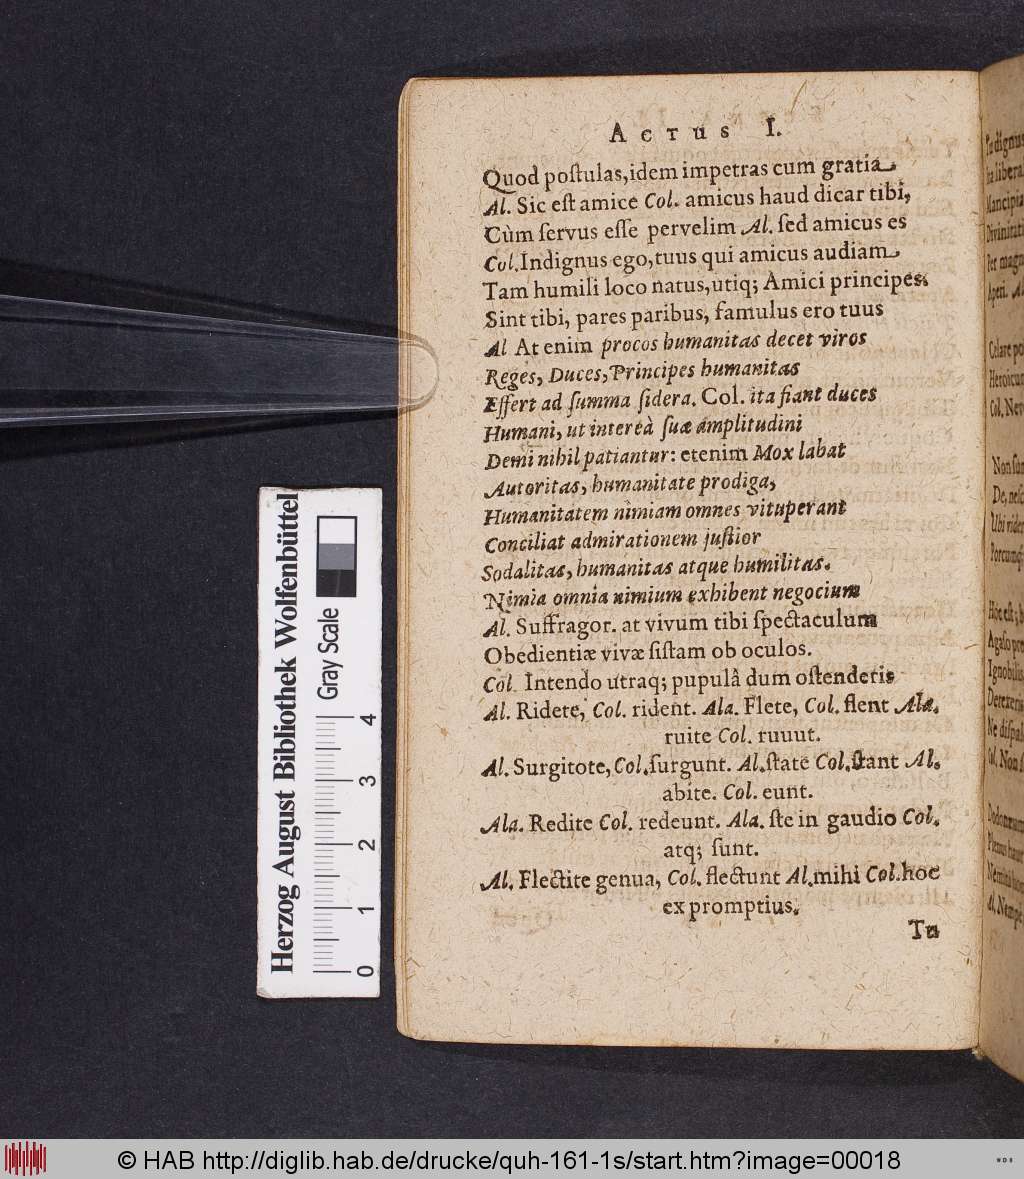 Actus I.
Quod poſtulas, idem impetras cum gratia
Al. Sic eſt amice Col. amicus haud dicar tibi,
Cùm ſervus eſſe pervelim Al. ſed amicus es
Col. Indignus ego, tuus qui amicus audiam
Tam humili loco natus, utiq; Amici principes
Sint tibi, pares paribus, famulus ero tuus
Al At enim procos humanitas decet viros
Reges, Duces, Principes humanitas
Effert ad ſumma ſidera. Col. ita fiant duces
Humani, ut intereà ſuæ amplitudini
Demi nihil patiantur: etenim Mox labat
Autoritas, humanitate prodiga,
Humanitatem nimiam omnes vituperant
Conciliat admirationem juſtior
Sodalitas, humanitas atque humilitas.
Nimia omnia nimium exhibent negocium
Al. Suffragor. at vivum tibi ſpectaculum
Obedientiæ vivæ ſiſtam ob oculos.
Col. Intendo utraq; pupulâ dum oſtenderis
Al. Ridete, Col. rident. Ala. Flete, Col. flent Ala.
ruite Col. ruuut.
Al. Surgitote, Col. ſurgunt. Al. ſtate Col. ſtant Al.
abite. Col. eunt.
Ala. Redite Col. redeunt. Ala. ſte in gaudio Col.
atq; ſunt.
Al. Flectite genua, Col. flectunt Al. mihi Col. hoc
ex promptius.
Tu
Herzog August Bibliothek Wolfenbüttel
Gray Scale
0 1 2 3 4
© HAB http://diglib.hab.de/drucke/quh-161-1s/start.htm?image=00018